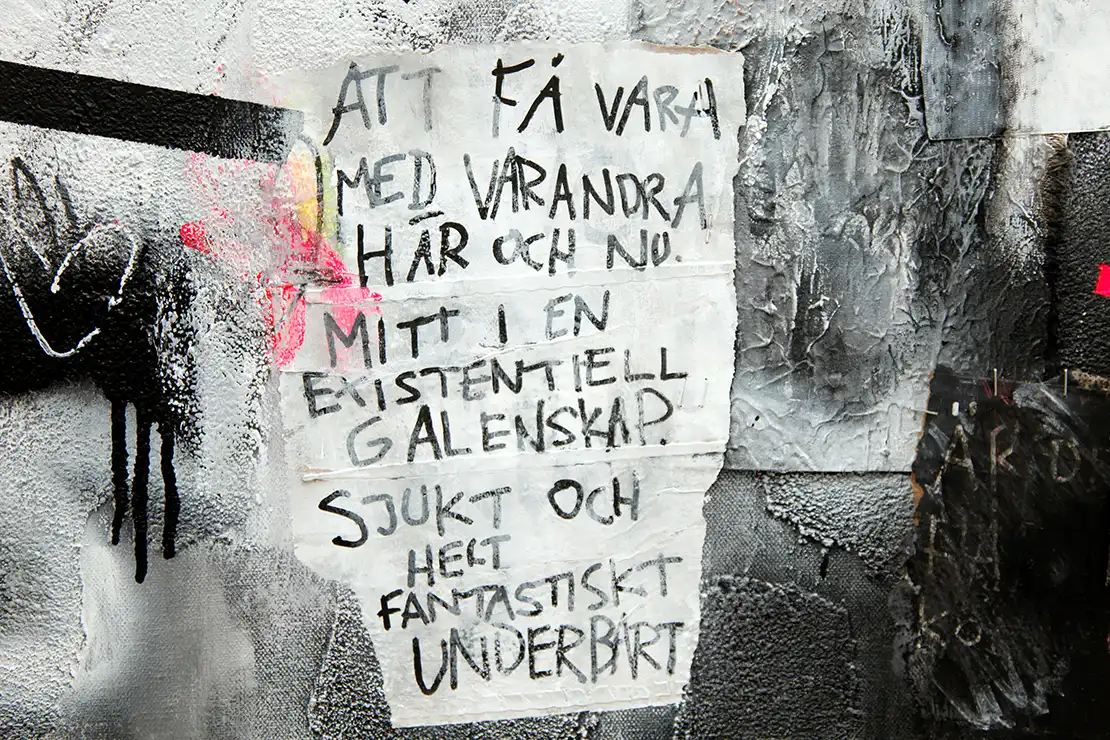 ATT FÅ VARA
MED VARANDRA
HÄR OCH NU.
MITT I EN
EXISTENTIELL
GALENSKAP.
SJUKT OCH
HELT
FANTASTISKT
UNDERBART